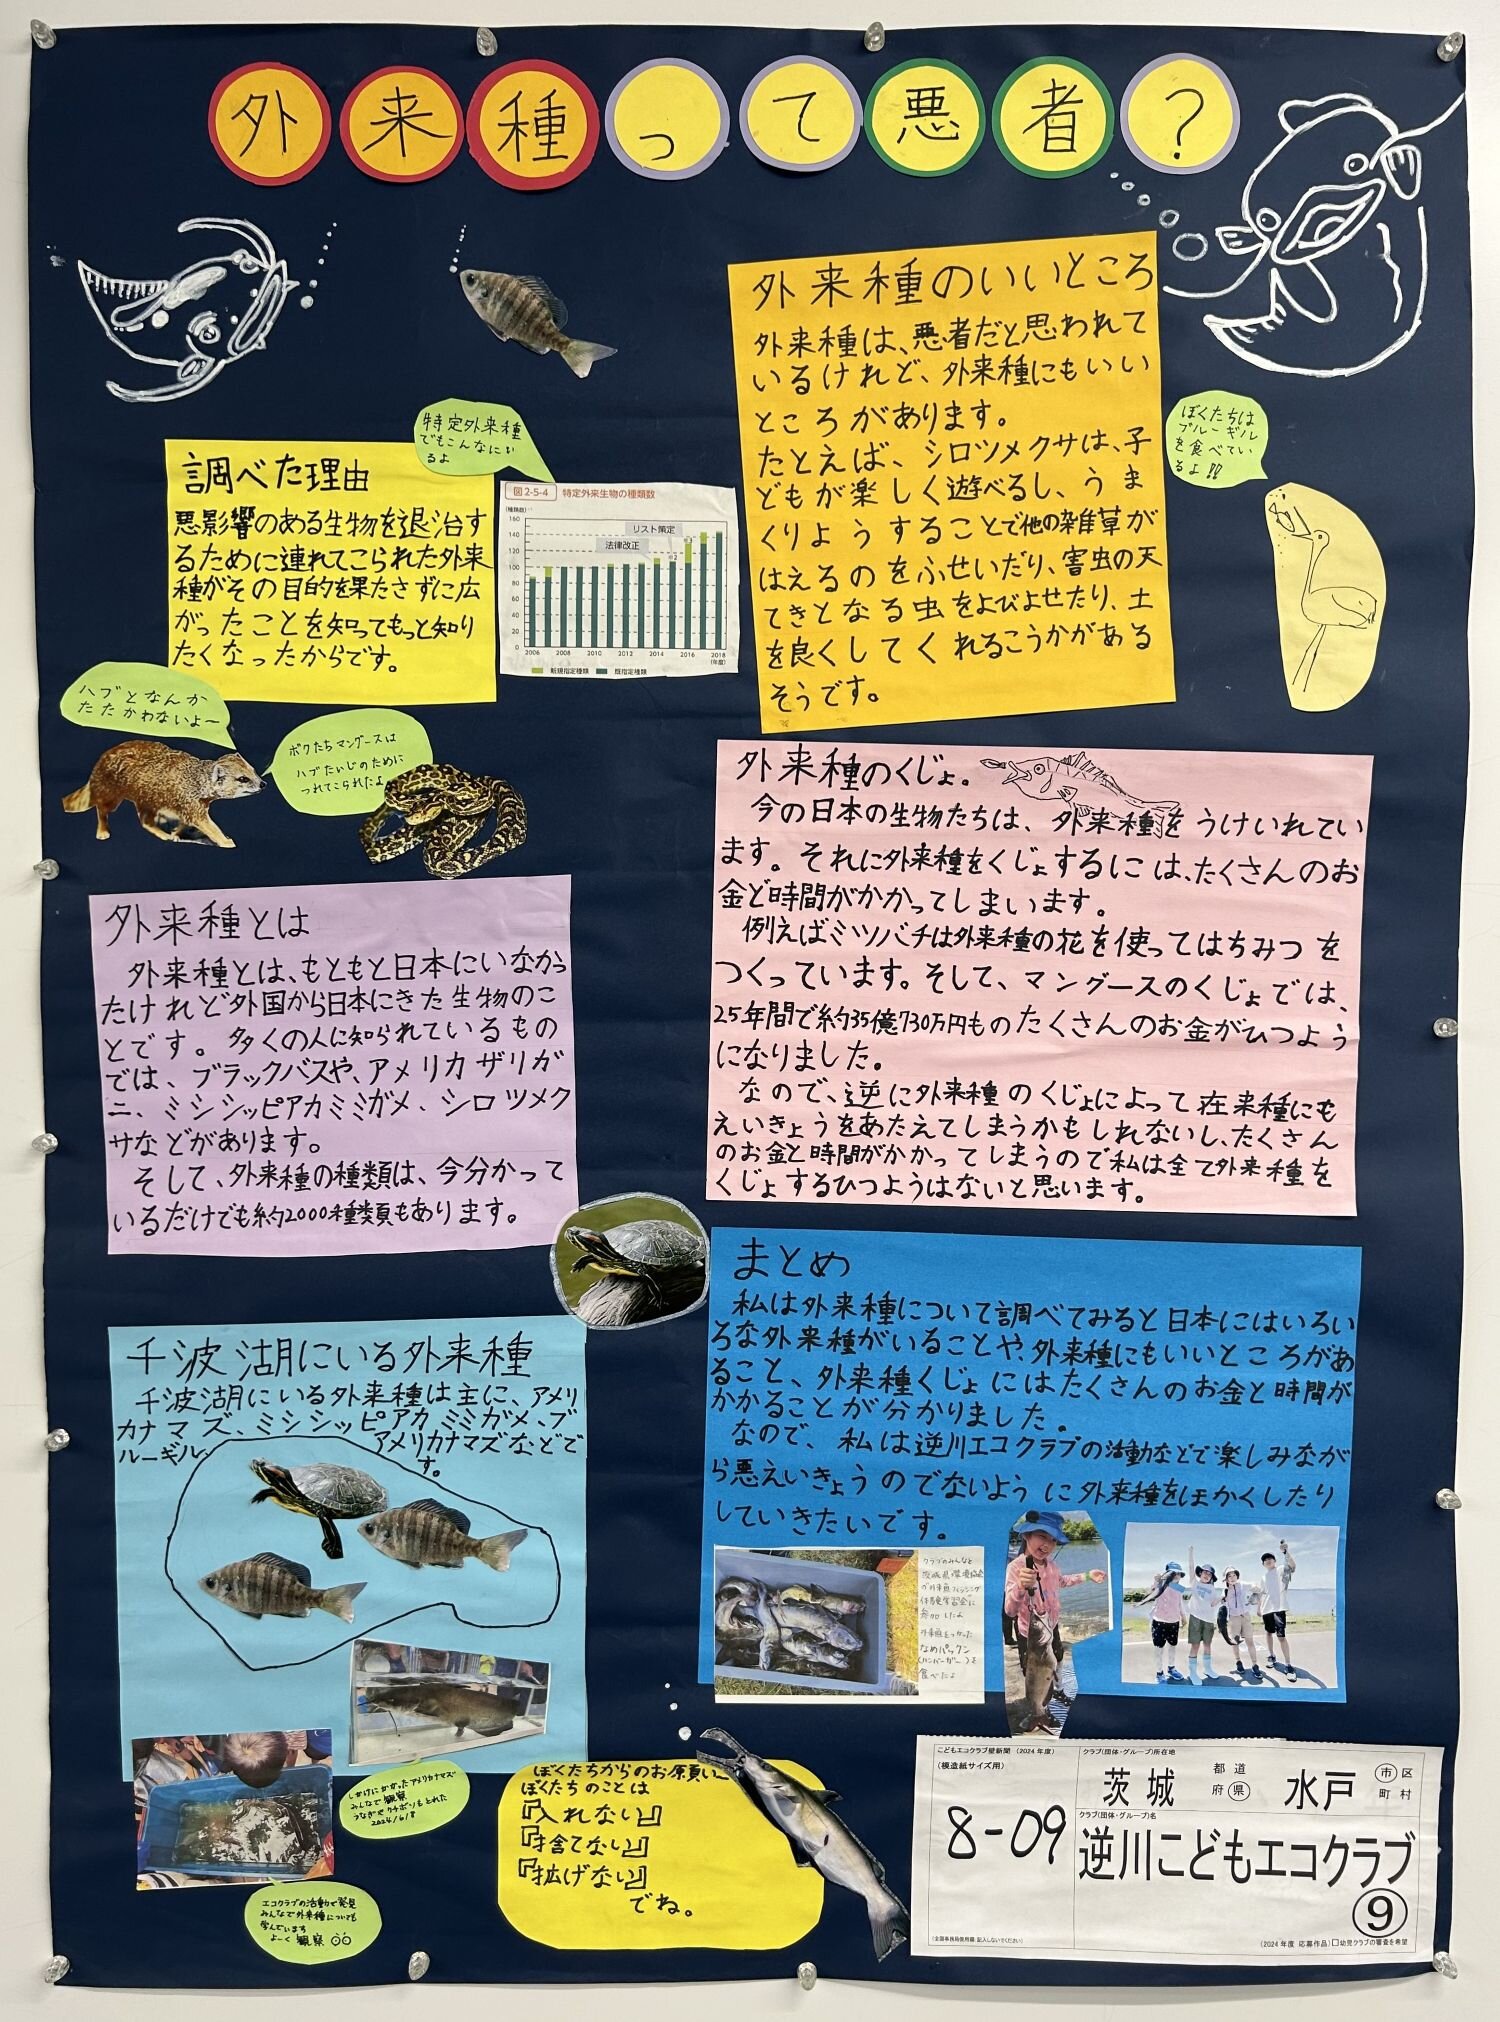 外来種って悪者?
特定外来種
でもこんなにい
るよ
調べた理由
悪影響のある生物を退治す
るために連れてこられた外来
種がその目的を果たさずに広
がったことを知ってもっと知り
たくなったからです。
図2-5-4 特定外来生物の種類数
(種類数)
160
140
120
100
80
60
40
20
0
リスト策定
法律改正
※2
2006 2008 2010 2012 2014 2016 2018
(年度)
新規指定種類 既指定種類
外来種のいいところ
外来種は、悪者だと思われて
いるけれど、外来種にもいい
ところがあります。
たとえば、シロツメクサは、子
どもが楽しく遊べるし、うま
くりようすることで他の雑草が
はえるのをふせいだり、害虫の天
てきとなる虫をよびよせたり、土
を良くしてくれるこうかがある
そうです。
ぼくたちは
ブルーギル
を食べてい
るよ!!
ハブとなんか
たたかわないよー
ボクたちマングースは
ハブたいじのために
つれてこられたよ
外来種とは
外来種とは、もともと日本にいなかっ
たけれど外国から日本にきた生物のこ
とです。多くの人に知られているもの
では、ブラックバスや、アメリカザリガ
ニ、ミシシッピアカミミガメ、シロツメク
サなどがあります。
そして、外来種の種類は、今分かって
いるだけでも約2000種類もあります。
外来種のくじょ。
今の日本の生物たちは、外来種をうけいれてい
ます。それに外来種をくじょするには、たくさんのお
金と時間がかかってしまいます。
例えばミツバチは外来種の花を使ってはちみつを
つくっています。そして、マングースのくじょでは、
25年間で約35億730万円ものたくさんのお金がひつよう
になりました。
なので、逆に外来種のくじょによって在来種にも
えいきょうをあたえてしまうかもしれないし、たくさん
のお金と時間がかかってしまうので私は全て外来種を
くじょするひつようはないと思います。
千波湖にいる外来種
千波湖にいる外来種は主に、アメリ
カナマズ、ミシシッピアカミミガメ、ブ
ルーギル、アメリカナマズなどで
す。
まとめ
私は外来種について調べてみると日本にはいろい
ろな外来種がいることや、外来種にもいいところがあ
ること、外来種くじょにはたくさんのお金と時間が
かかることが分かりました。
なので、私は逆川エコクラブの活動などで楽しみなが
ら悪えいきょうのでないように外来種をほかくしたり
していきたいです。
クラブのみんなと
茨城県環境協会
の外来魚フィッシング
体験学習会に
参加したよ
外来魚をつかった
なめパックン
(ハンバーガー)を
食べたよ
しかけにかかったアメリカナマズ
みんなで観察
うなぎやクチボソもとれた
2024/6/8
エコクラブの活動で発見
みんなで外来種についても
学んでいます
よーく観察
ぼくたちからのお原頁い
ぼくたちのことは
『入れない』
『捨てない』
『拡げない』
でね。
こどもエコクラブ壁新聞 (2024年度)
(模造紙サイズ用)
8-09
クラブ(団体・グループ)所在地
茨城 都道府県 水戸 市区町村
クラブ(団体・グループ)名
逆川こどもエコクラブ
⑨
(全国事務局使用欄:記入しないでください)
(2024年度 応募作品) □幼児クラブの審査を希望